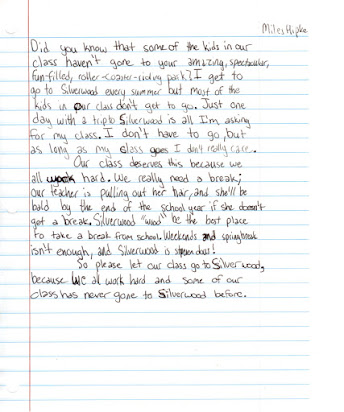 Miles Hipke
Did you know that some of the kids in our
class haven't gone to your amazing, spectacular,
fun-filled, roller-coaster-riding park? I get to
go to Silverwood every summer but most of the
kids in our class don't get to go. Just one
day with a trip to Silverwood is all I'm asking
for my class. I don't have to go, but
as long as my class goes I don't really care.
Our class deserves this because we
all work hard. We really need a break;
our teacher is pulling out her hair, and she'll be
bald by the end of the school year if she doesn't
get a break. Silverwood "wood" be the best place
to take a break from school. Weekends and springbreak
isn't enough, and Silverwood is !
So please let our class go to Silverwood,
because we al work hard and some of our
class has never gone to Silverwood before.